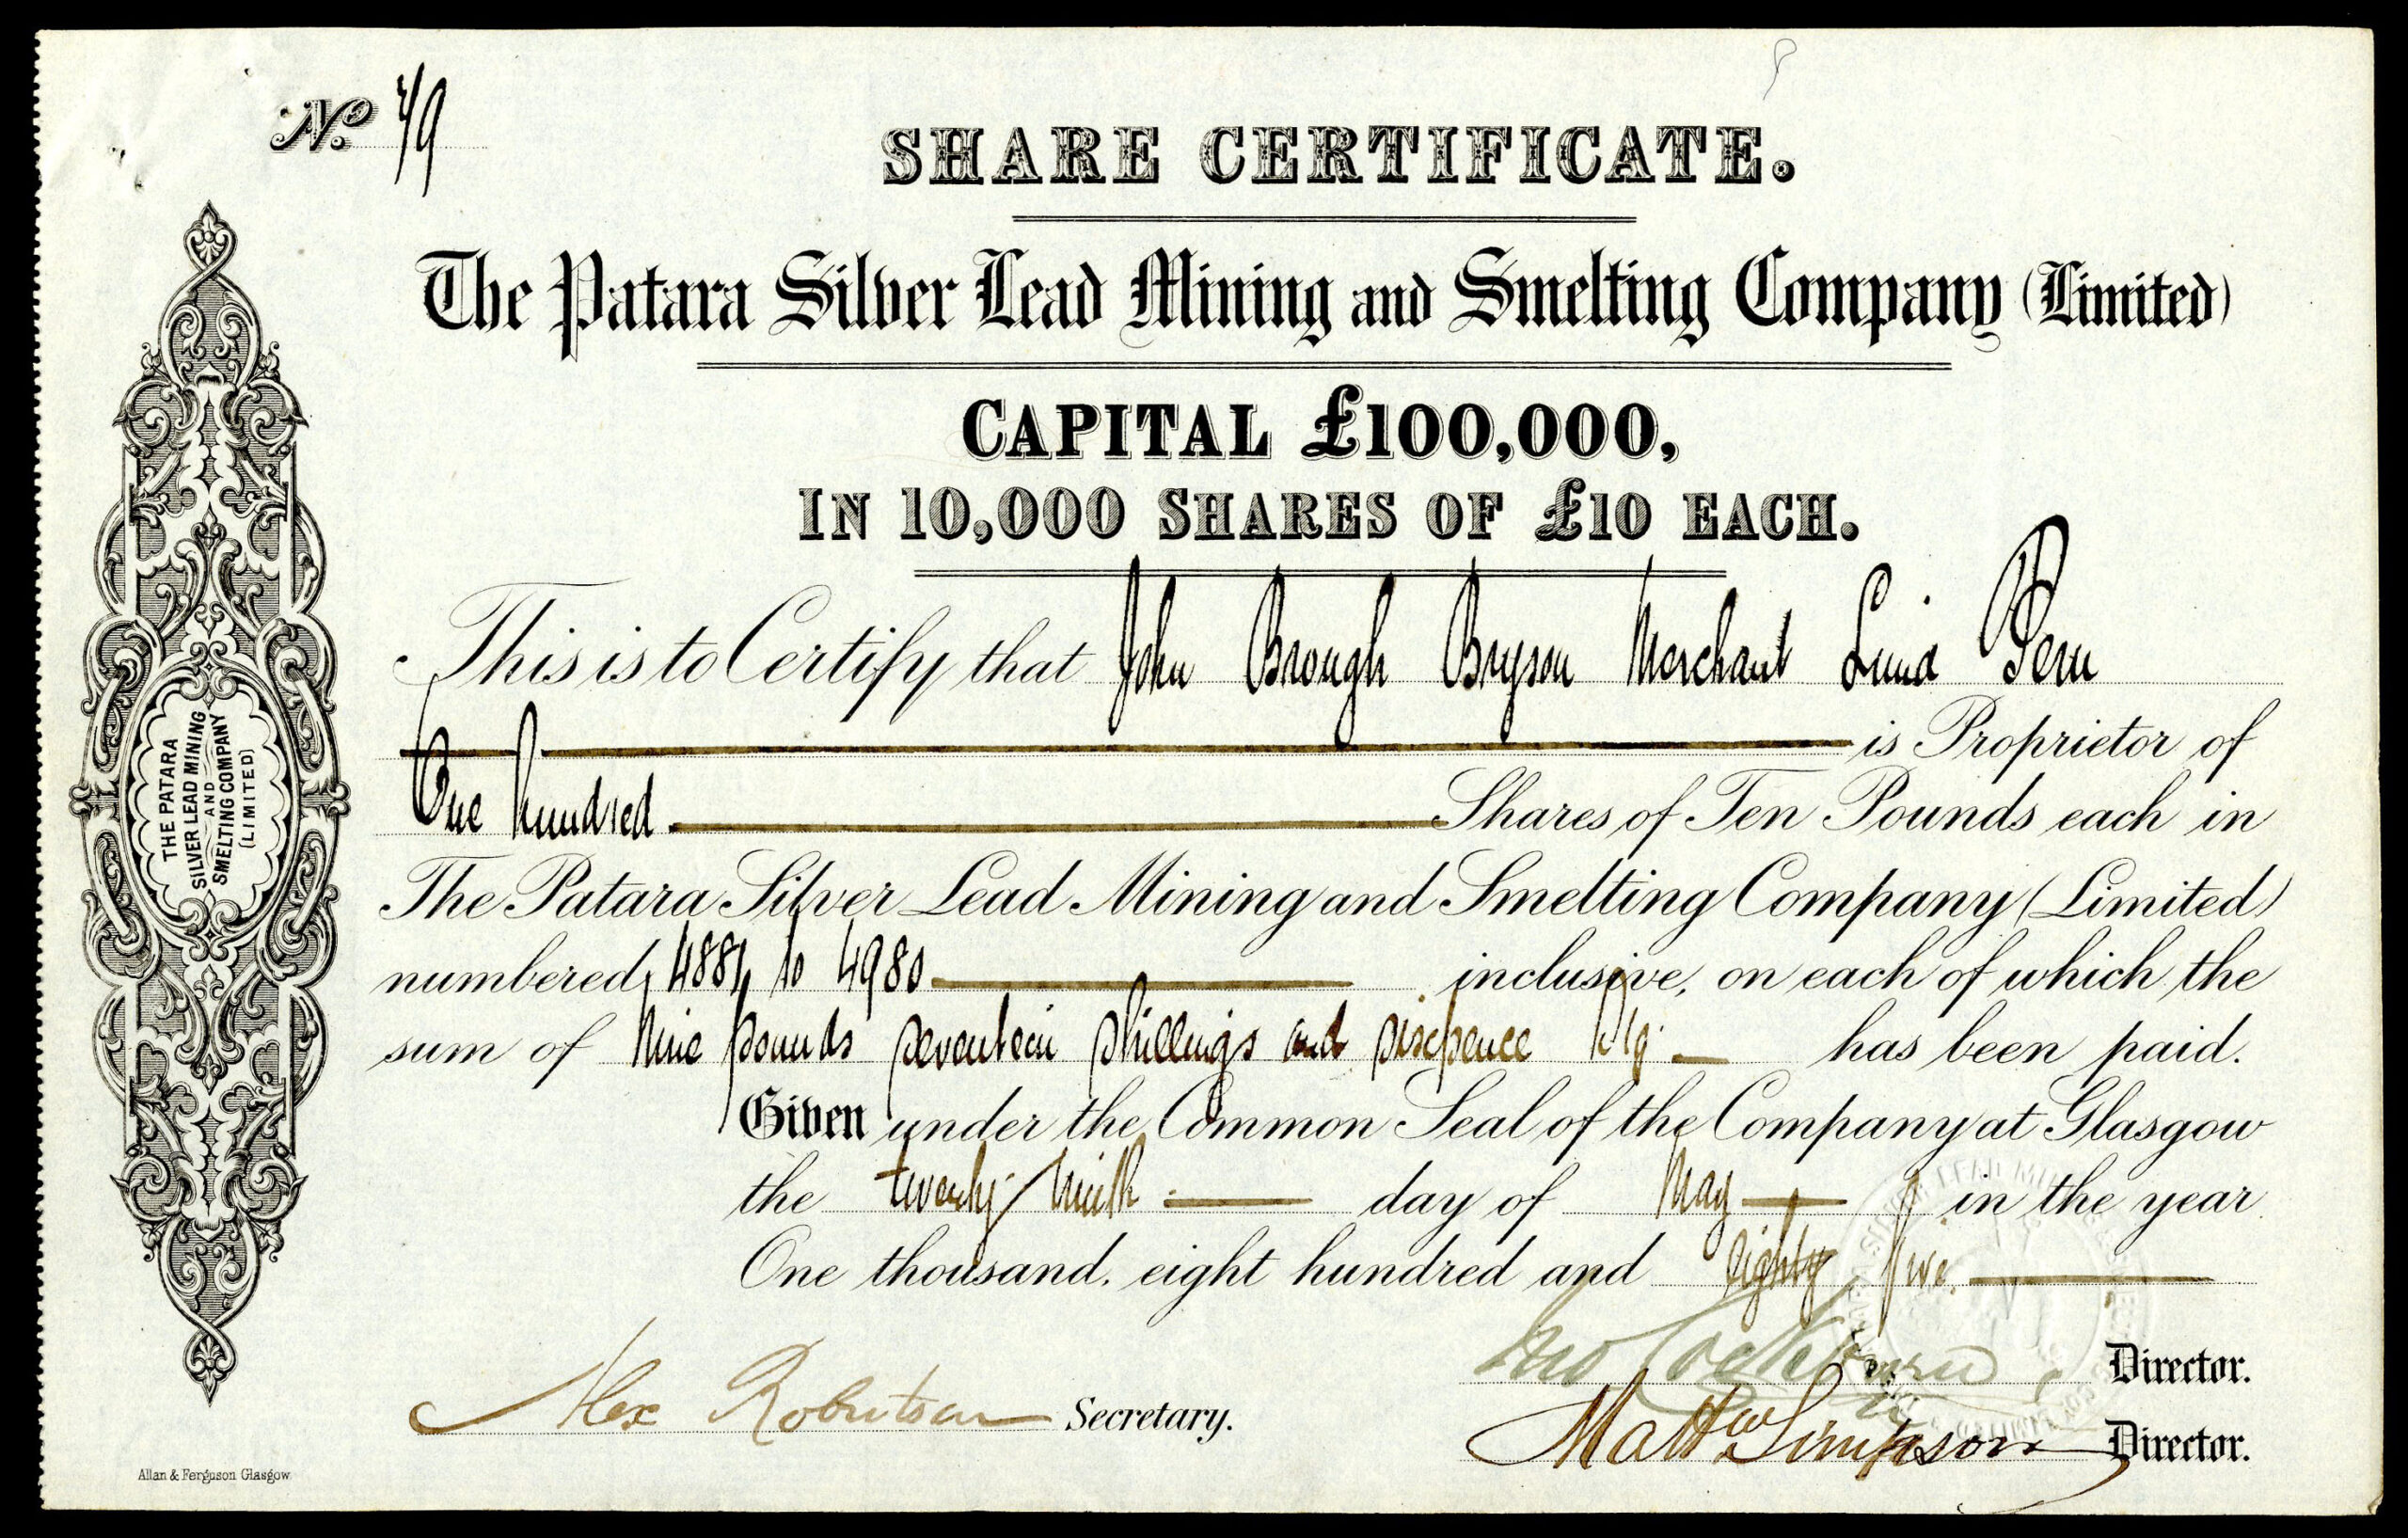 No.
SHARE CERTIFICATE.
The Patara Silver Lead Mining and Smelting Company (Limited)
CAPITAL £100,000,
IN 10,000 SHARES OF £10 EACH.
This is to Certify that John Brough Bryson Merchant Lima Peru
is Proprietor of
One hundred Shares of Ten Pounds each in
The Patara Silver Lead Mining and Smelting Company (Limited)
numbered 4881 to 4980 inclusive, on each of which the
sum of Nine pounds seventeen shillings and sixpence Stg. has been paid.
Given under the Common Seal of the Company at Glasgow
the twenty ninth day of May in the year
One thousand, eight hundred and Eighty five.
Jno Cockburn Director.
Alex Robertson Secretary.
Matthw Simpson Director.
THE PATARA
SILVER LEAD MINING
AND
SMELTING COMPANY
(LIMITED)
Allan & Ferguson Glasgow